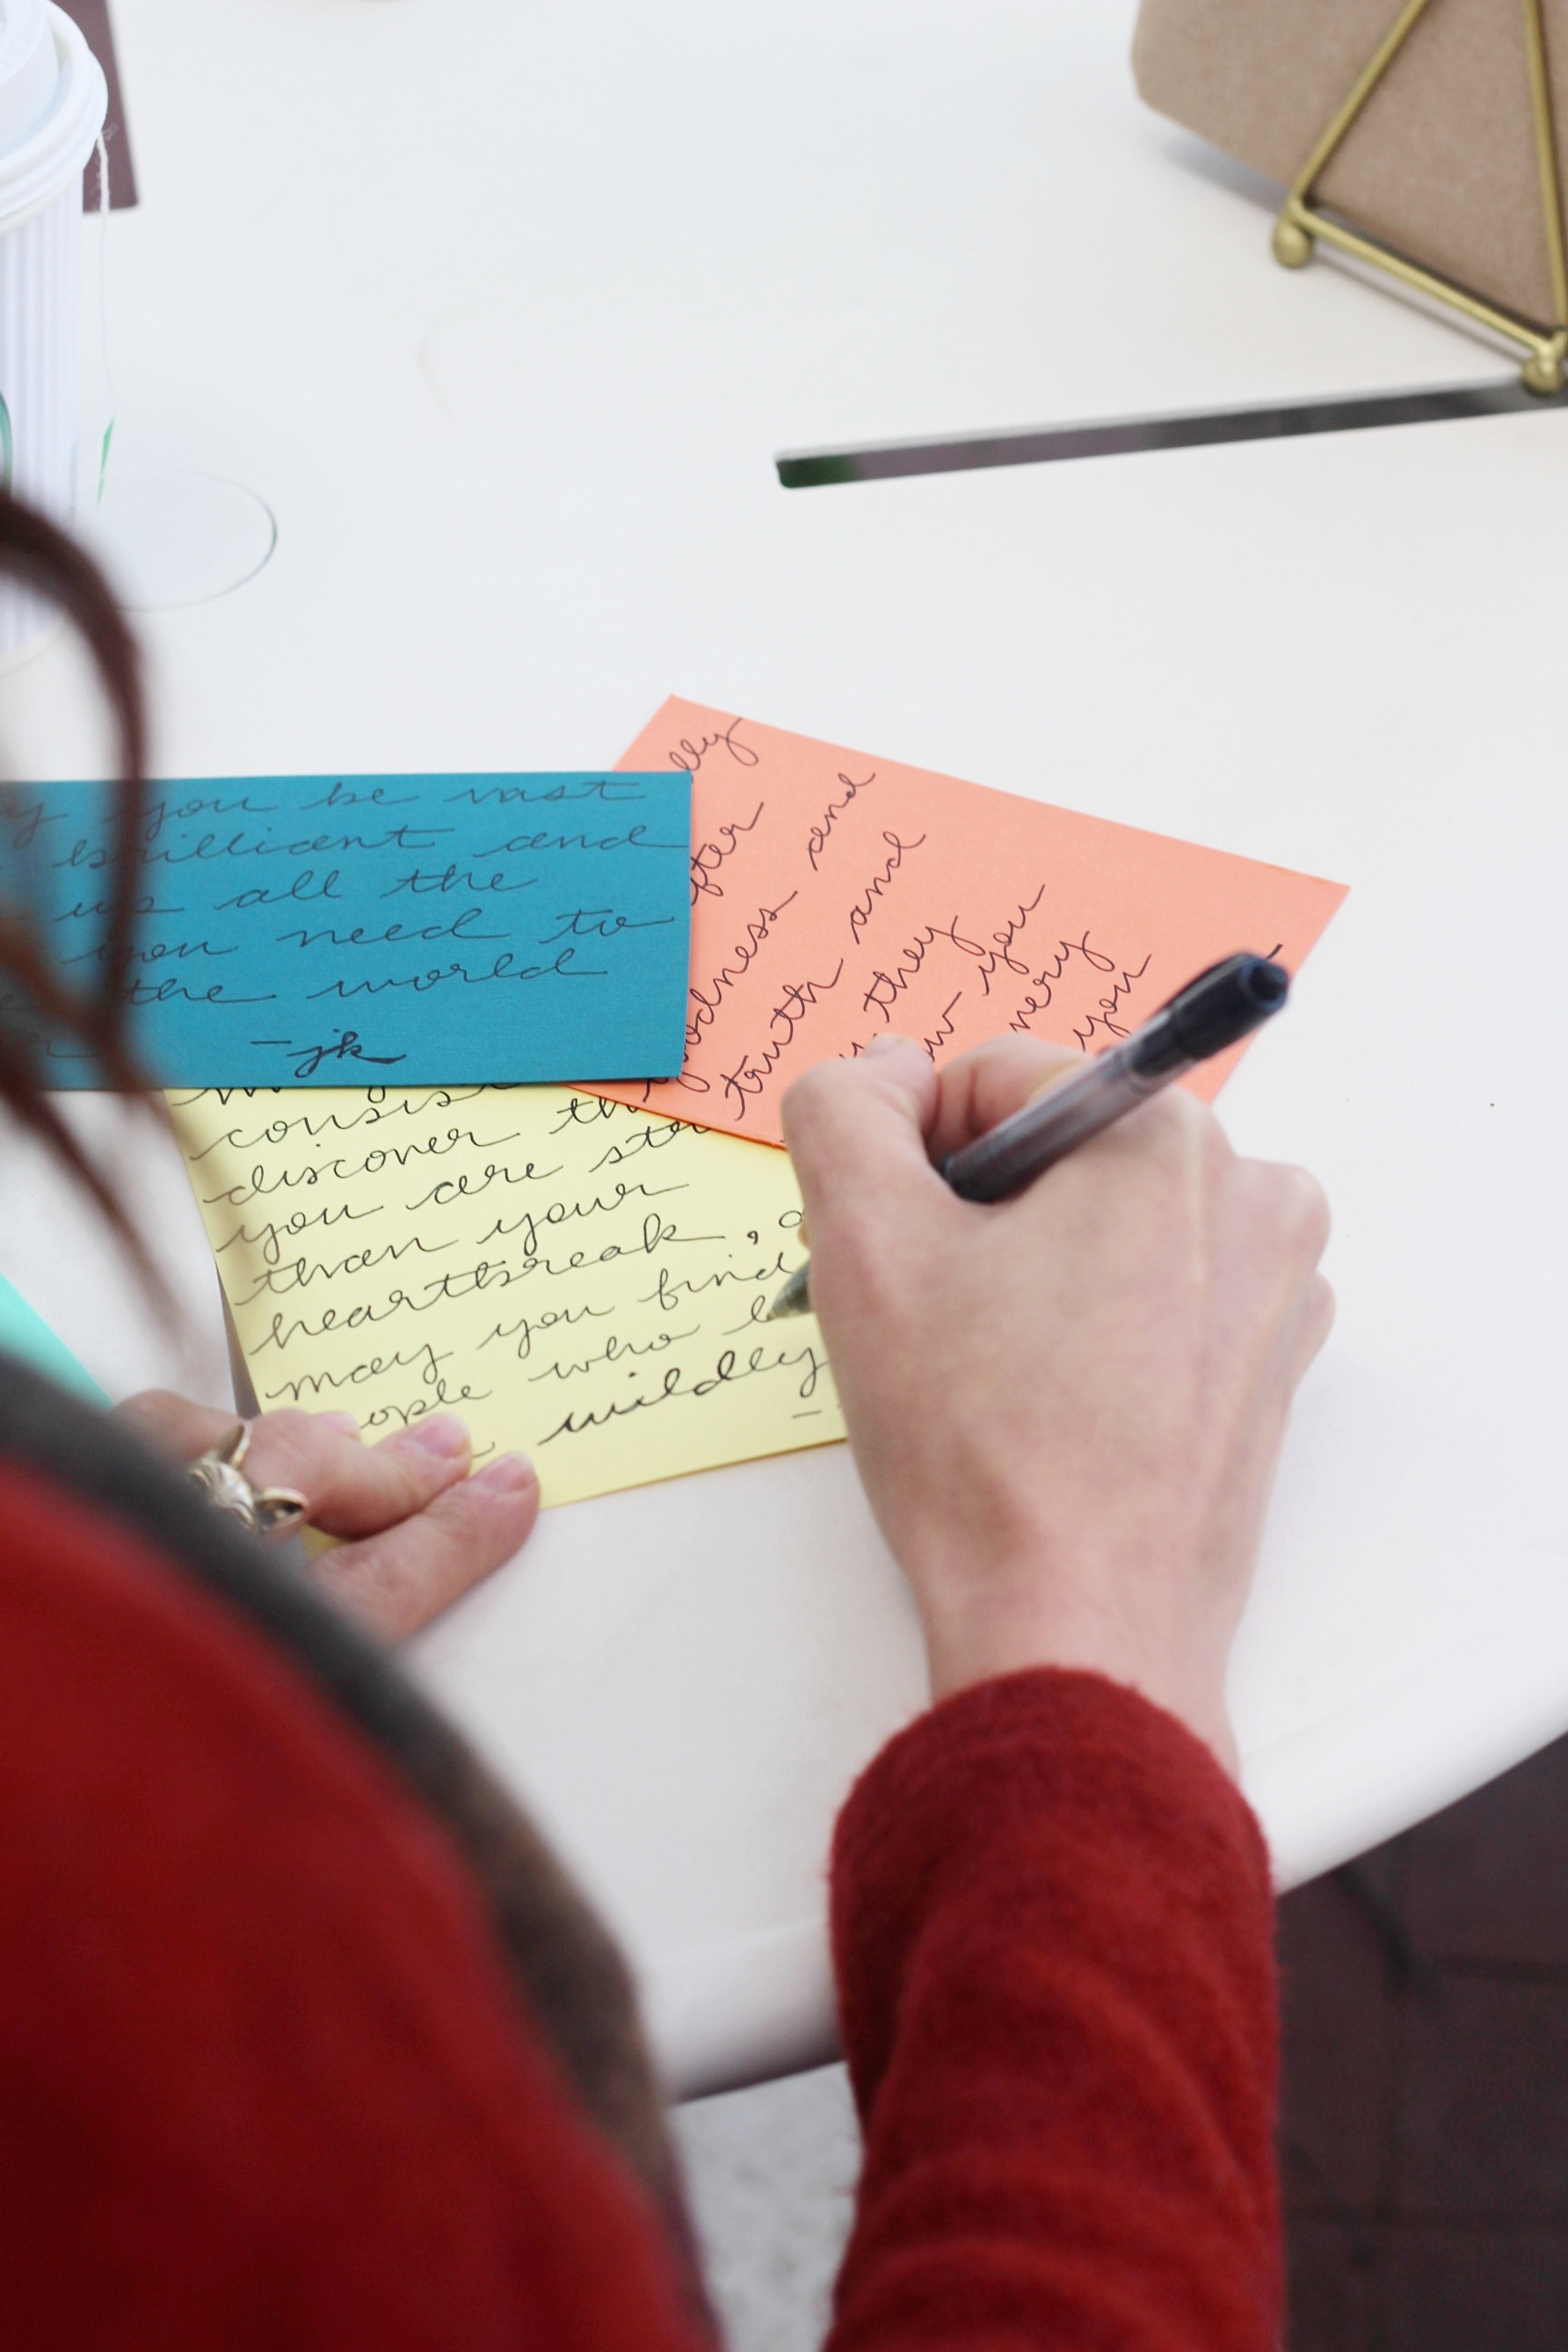 you be vast
brilliant and
us all the
you need to
the world
-jk
lly
fter
goodness and
truth and
they
you
very
you
consis
discover th
you are str
than your
heartbreak, a
may you find
ople who l
wildly
-